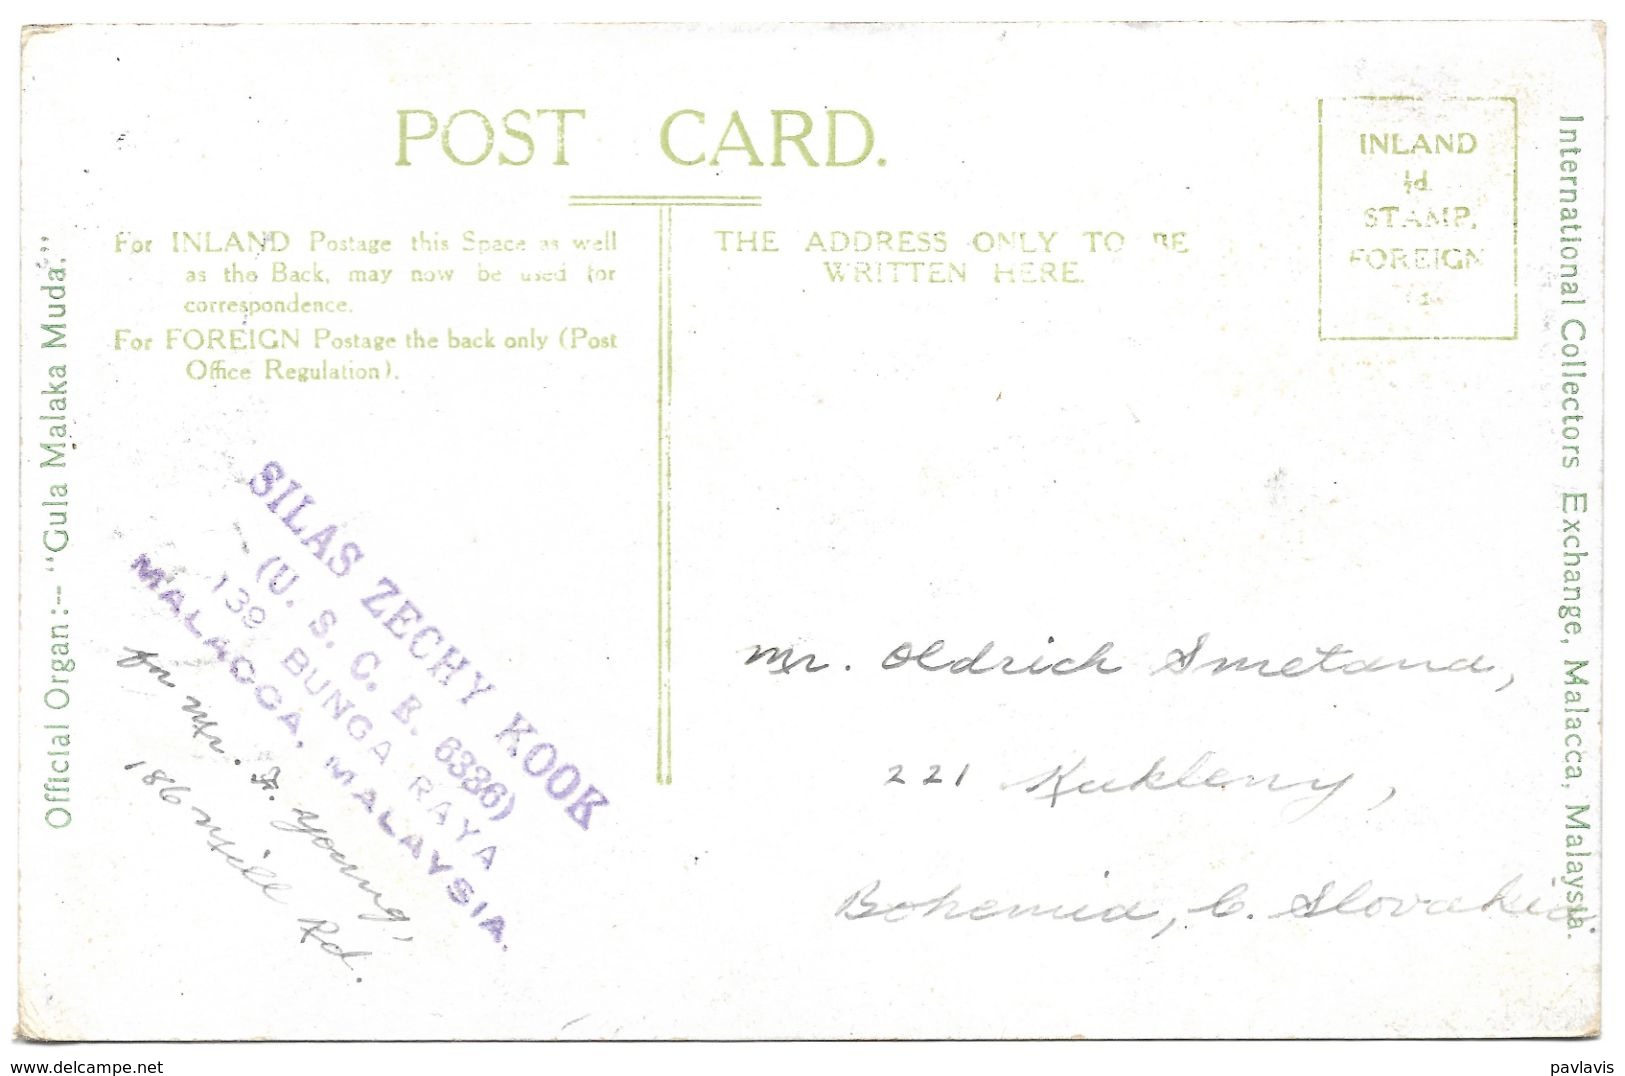 POST CARD.
For INLAND Postage this Space as well
as the Back, may now be used for
correspondence.
For FOREIGN Postage the back only (Post
Office Regulation).
THE ADDRESS ONLY TO BE
WRITTEN HERE.
INLAND
½d
STAMP.
FOREIGN
Official Organ :-- "Gula Malaka Muda."
International Collectors Exchange, Malacca, Malaysia.
SILAS ZECHY KOOK
(U. S. C. E. 6336)
139 BUNGA RAYA
MALACCA, MALAYSIA.
Mr. S. Young,
186 Mill Rd.
Mr. Oldrich Smetana,
221 Kukleny,
Bohemia, C. Slovakia.
www.delcampe.net
pavlavis